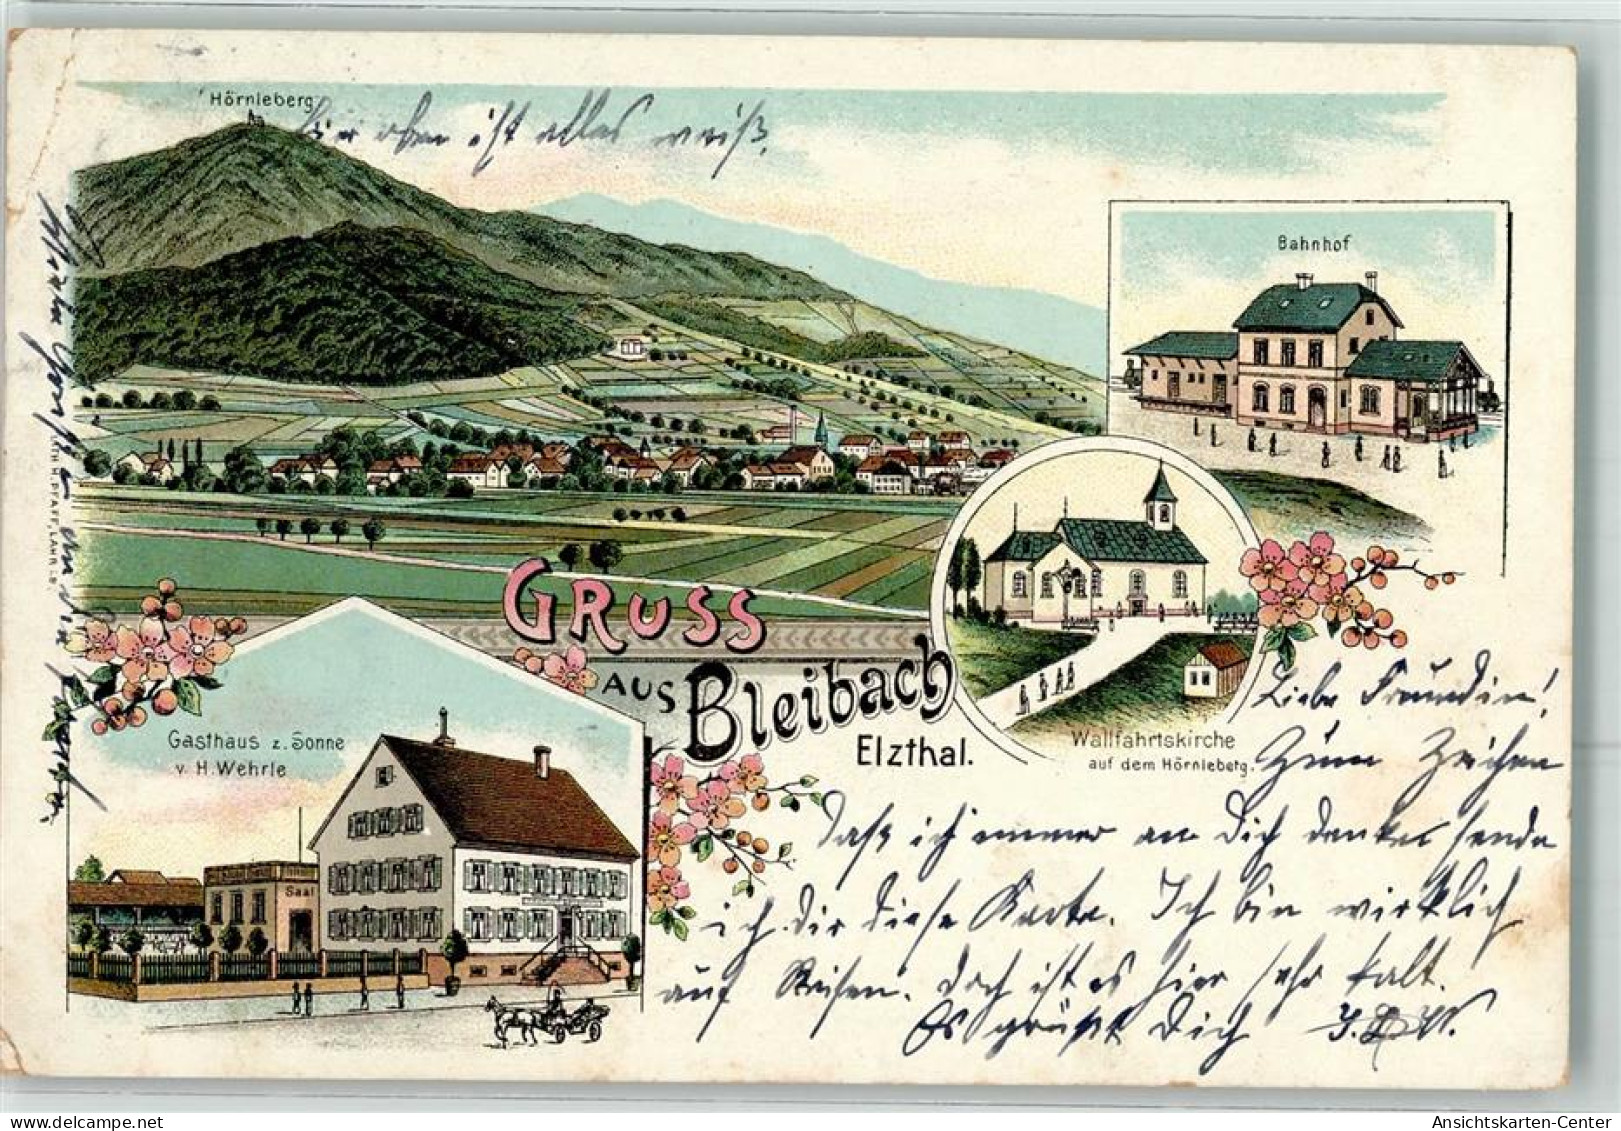 Hörnleberg
hier oben ist alles weiß.
Bahnhof
GRUSS
AUS Bleibach
Elzthal.
Wallfahrtskirche
auf dem Hörnleberg.
Gasthaus z. Sonne
v. H. Wehrle
Saal
Liebe Freundin!
Zum Zeichen
daß ich immer an Dich denke sende
ich Dir diese Karte. Ich bin wirklich
auf Reisen. Doch ist es hier sehr kalt.
Es grüßt Dich
Ansichtskarten-Center